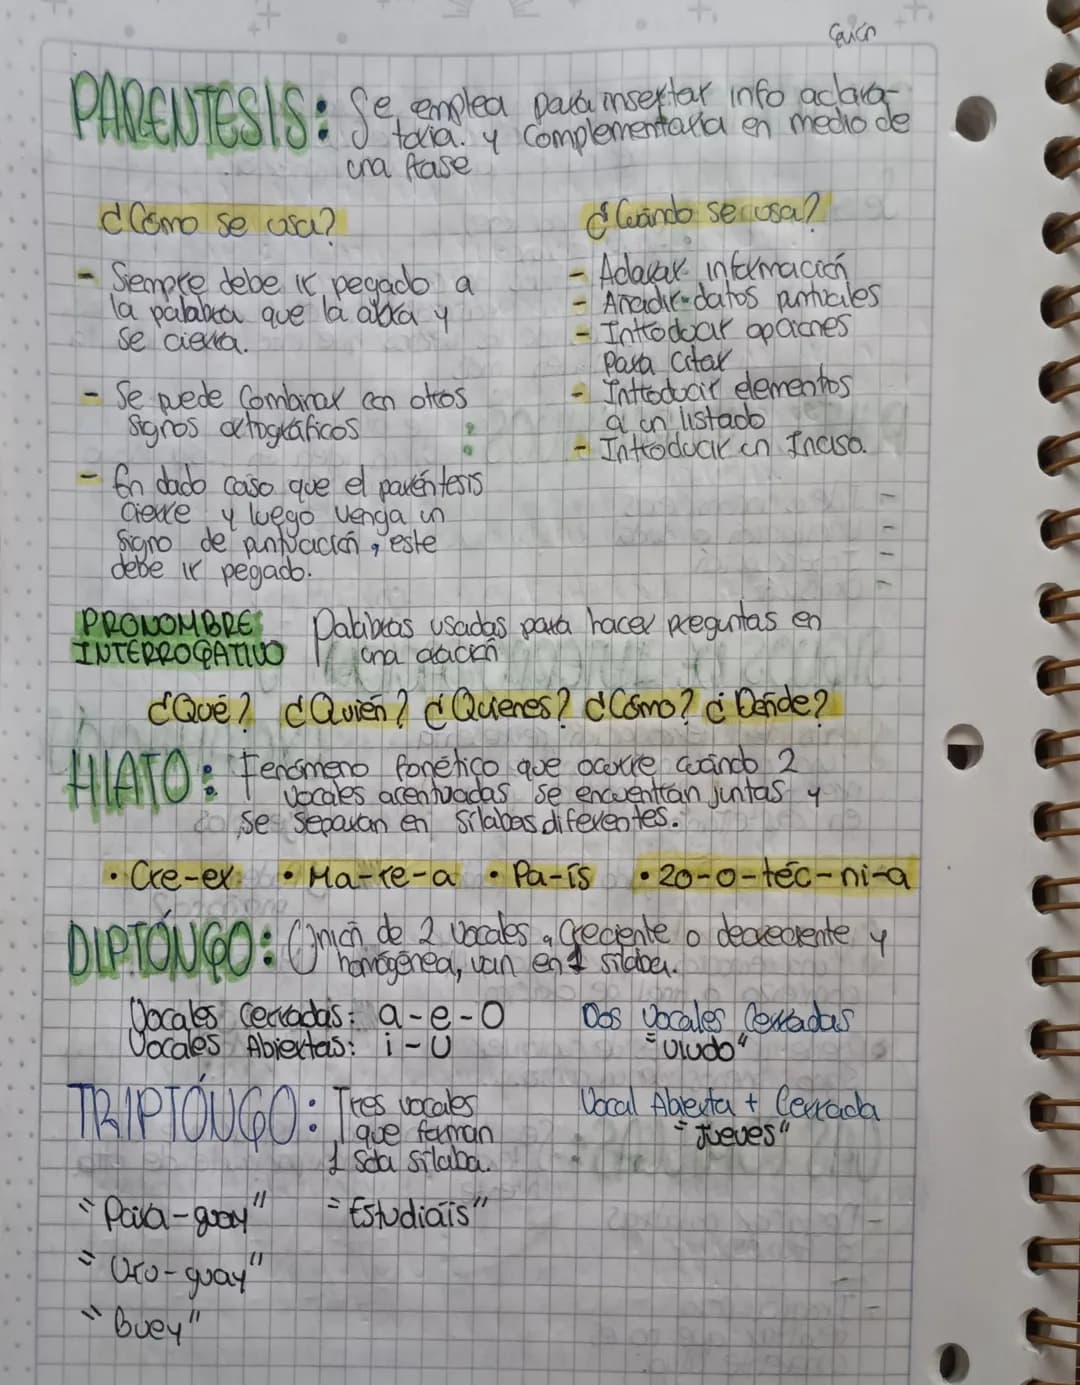 PARENTESIS: Se emplea para insertar info aclara-
toria. y complementaria en medio de
una frase
¿Cómo se usa?
- Siempre debe ir pegado a
la palabra que la abra y
se cierra.
- Se puede Combinar con otros
signos ortográficos
- En dado caso que el paréntesis
cierre y luego venga un
signo de puntuación, este
debe ir pegado.
¿Cuándo se usa?
- Aclarar información
- Anadir datos puntuales
- Introducir opiciones
para citar
- Introducir elementos
a un listado
- Introducir un Inciso.
PRONOMBRE INTERROGATIVO Palabras usadas para hacer preguntas en
una oración
¿Qué? ¿Quién? ¿Quienes? ¿Cómo? ¿Dónde?
HIATO: Fenómeno fonético que ocurre cuándo 2
vocales acentuadas se encuentran juntas y
se separan en sílabas diferentes.
• Cre-er • Ma-re-a • Pa-ís • zo-o-téc-ni-a
DIPTÓNGO: Unión de 2 vocales, Creciente o decreciente y
homogénea, van en 1 sílaba.
Vocales Cerradas: a-e-o
Vocales Abiertas: i-u
Dos Vocales Cerradas
"viudo"
Vocal Abierta + Cerrada
"Jueves"
TRIPTÓNGO: Tres vocales
que forman
1 sola sílaba.
"Para-guay" "Estudiáis"
"Uru-guay"
"Buey"